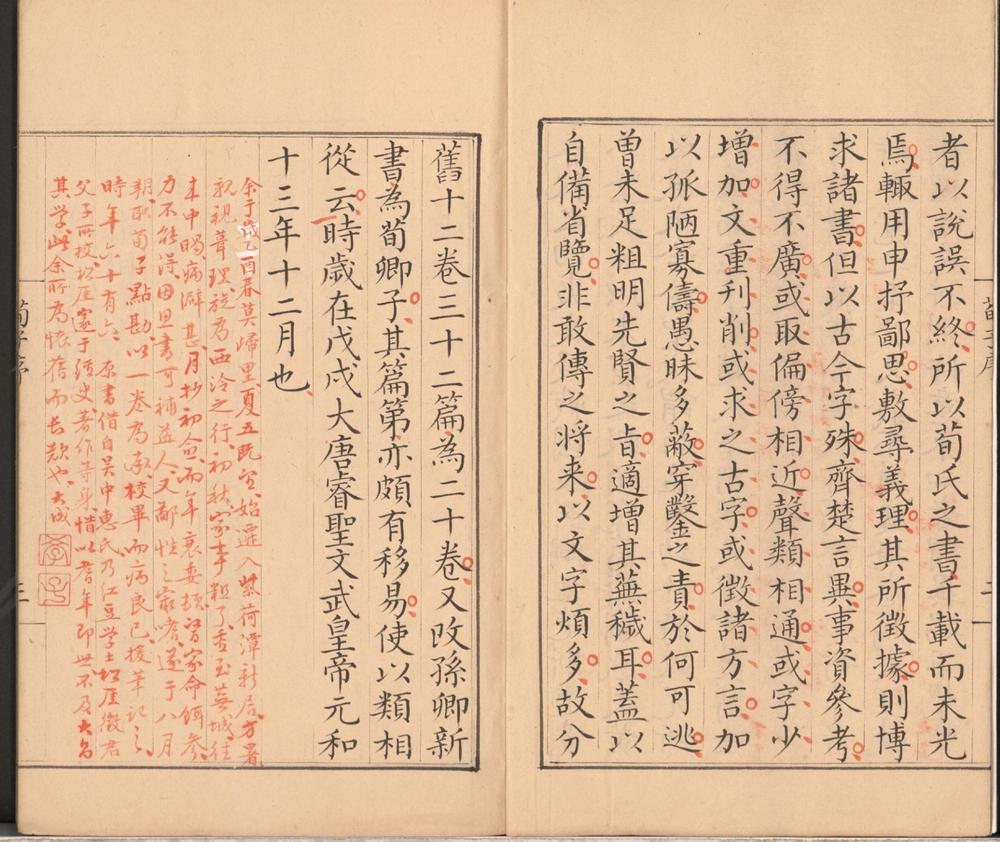 荀子序
二
者以說誤不終所以荀氏之書千載而未光
焉輒用申抒鄙思敷尋義理其所徵據則博
求諸書但以古今字殊齊楚言異事資參考
不得不廣或取偏傍相近聲類相通或字少
增加文重刋削或求之古字或徵諸方言加
以孤陋寡儔愚昧多蔽穿鑿之責於何可逃
曾未足粗明先賢之旨適增其蕪穢耳蓋以
自備省覽非敢傳之將来以文字煩多故分
舊十二卷三十二篇為二十卷又改孫卿新
書為荀卿子其篇第亦頗有移易使以類相
從云時歲在戊戌大唐睿聖文武皇帝元和
十三年十二月也
余于乙酉春莫歸里夏五既望始遷入紫荷潭新居方署
親視葺理旋為西泠之行初秋家事粗了香至蕪城往
来中暍病澼甚月抄初愈而年衰委頓習家命餌參
力不能得因思書可補益人又鄙性之最嗜遂于八月
朔取荀子點勘以一卷為率校畢而病良已援筆記之
時年六十有六原書借自吴中惠氏乃红豆学士松厓徵君
父子所校松厓邃于经史著作等身惜以耆年即世不及大其
其学此余所為懷舊而長歎也大成
荀子序
三